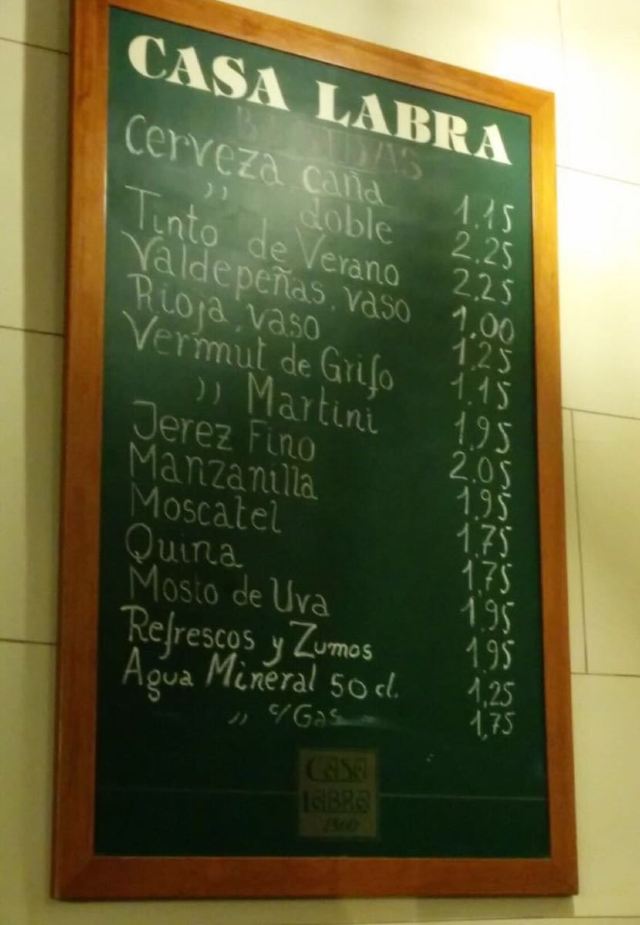 CASA LABRA
Cerveza caña 1.15
,, doble 2.25
Tinto de Verano 2.25
Valdepeñas, vaso 1.00
Rioja, vaso 1.25
Vermut de Grifo 1.15
,, Martini 1.95
Jerez Fino 2.05
Manzanilla 1.95
Moscatel 1.75
Quina 1.75
Mosto de Uva 1.95
Refrescos y Zumos 1.95
Agua Mineral 50 cl. 1,25
,, c/Gas 1,75
CASA
LABRA